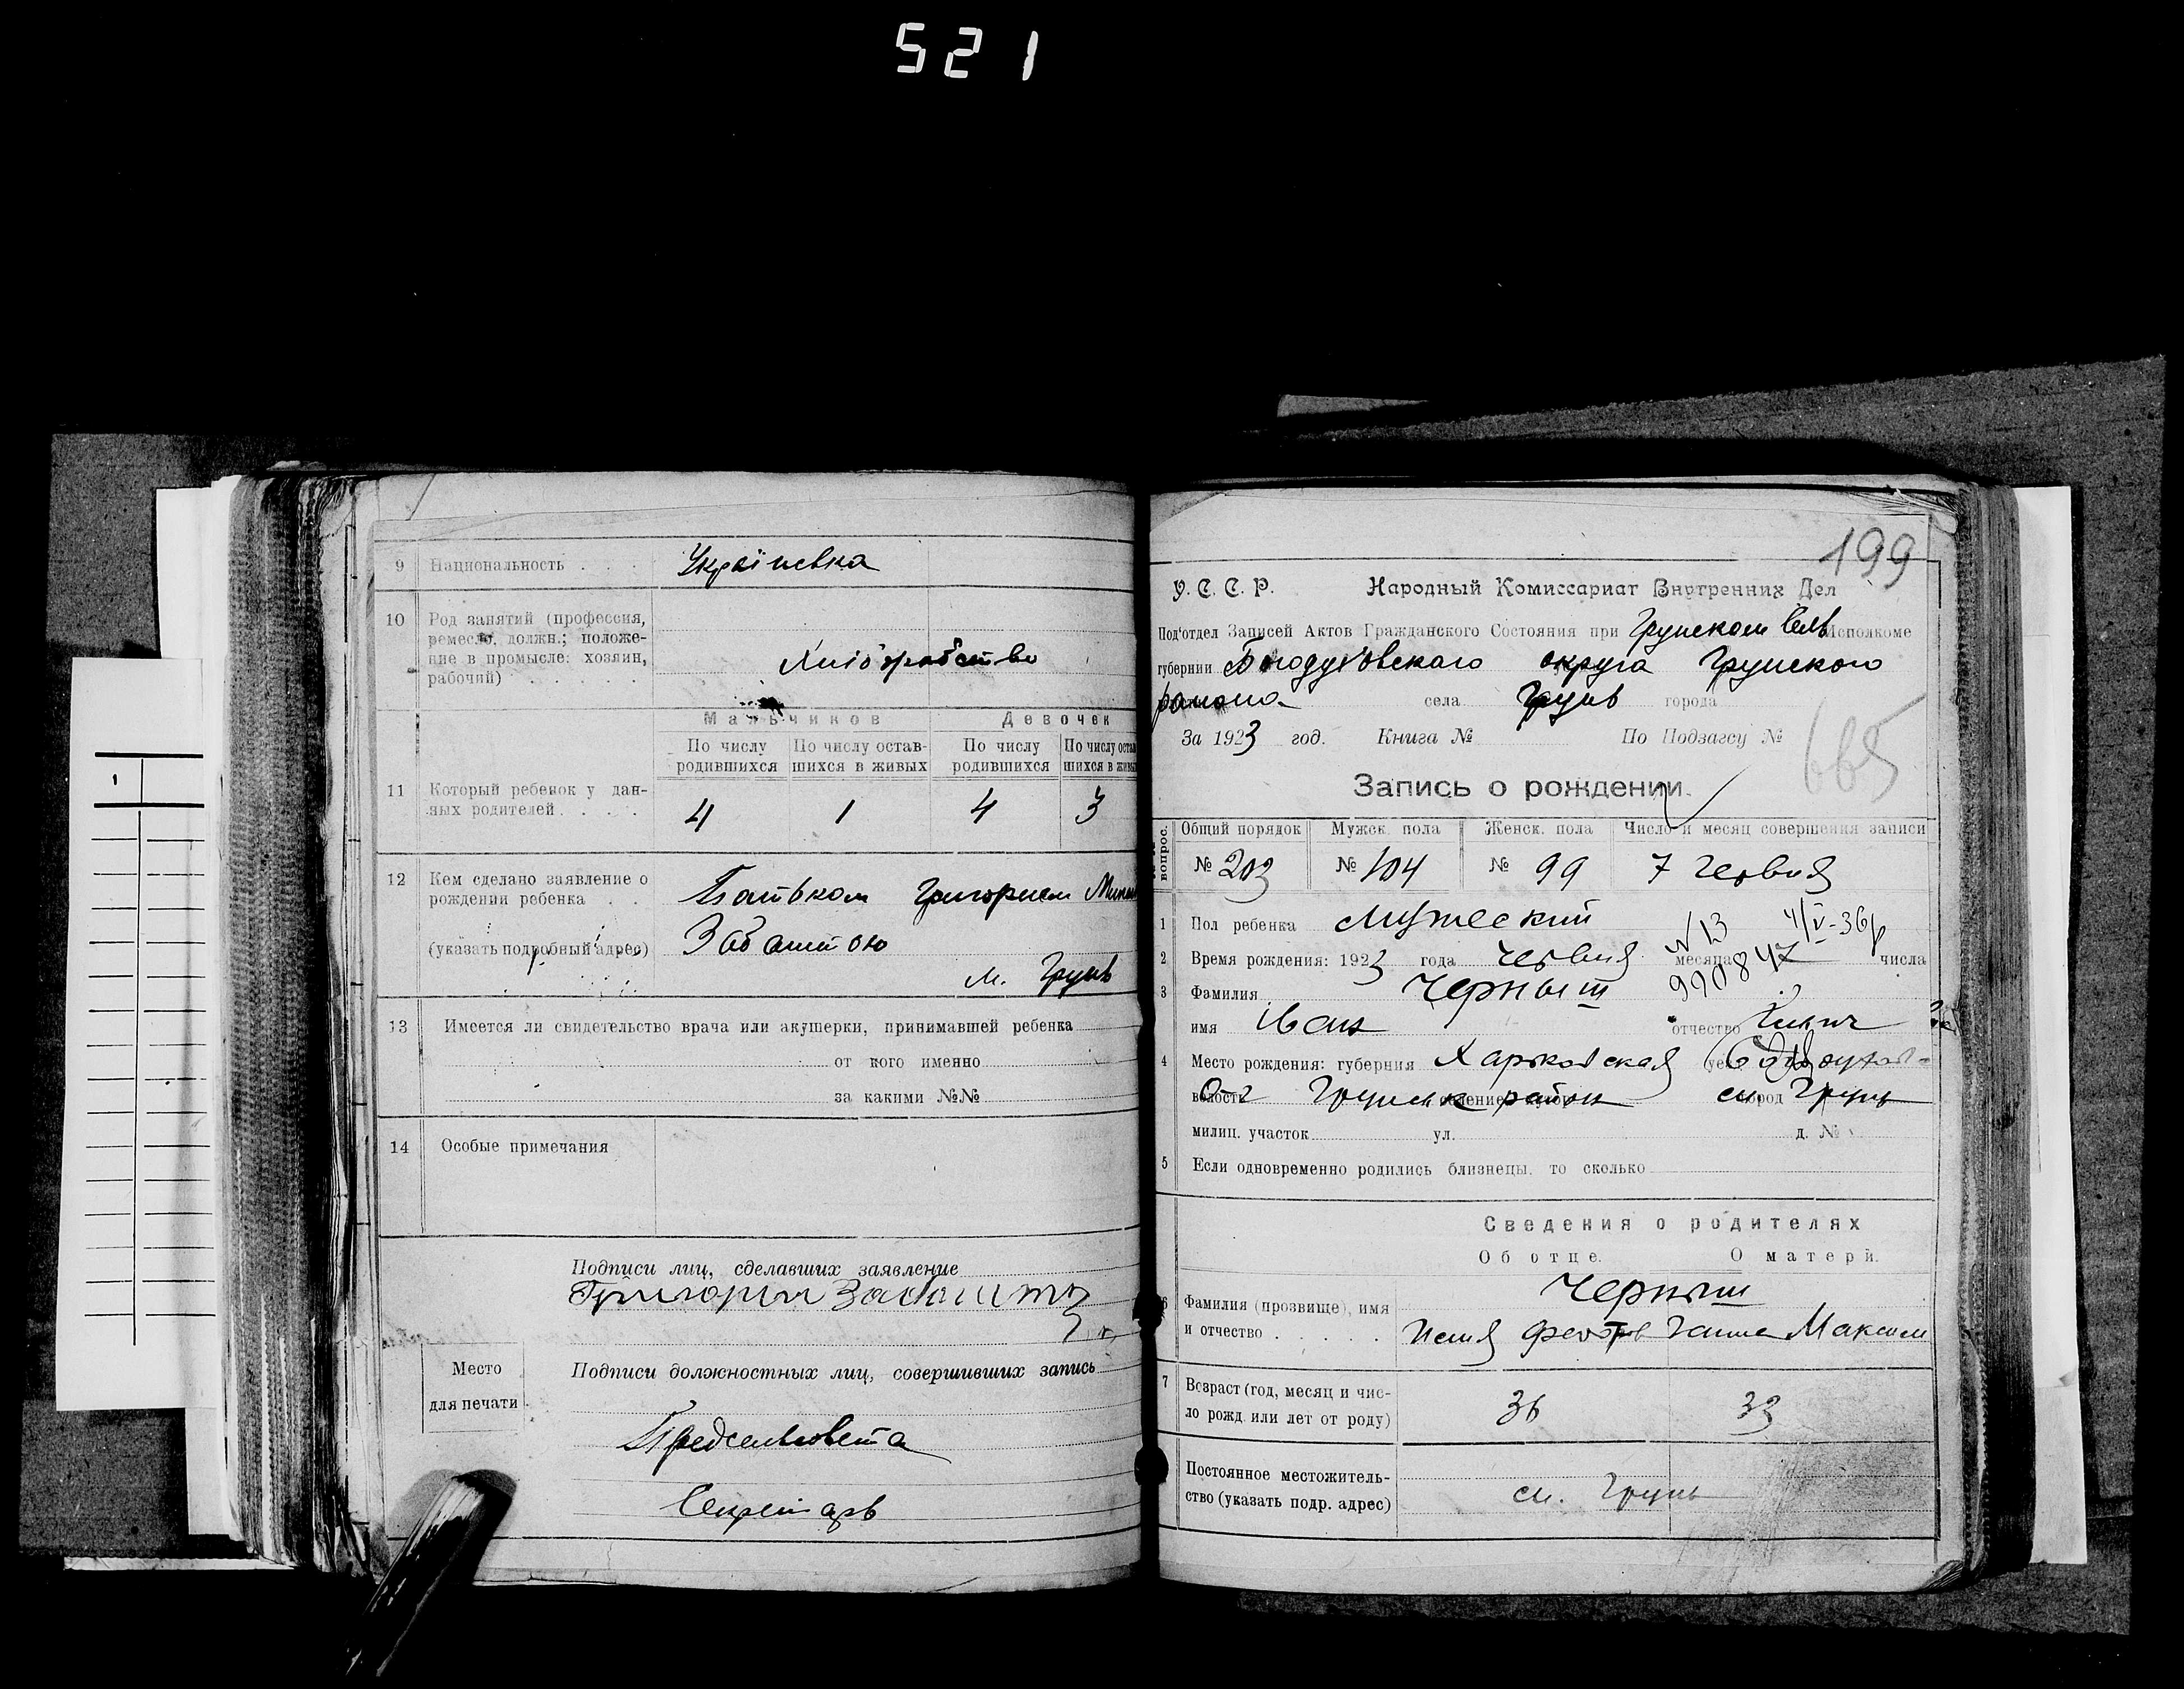 521
9 Национальность . . . Українка
10 Род занятий (профессия,
ремесло, должн.; положе-
ние в промысле: хозяин,
рабочий) . . . . . Хліборобство
Мальчиков Девочек
По числу родившихся По числу остав- шихся в живых По числу родившихся По числу остав шихся в живы
11 Который ребенок у дан-
ных родителей . . . . 4 1 4 3
12 Кем сделано заявление о
рождении ребенка . . Батьком Григорием
(указать подробный адрес) Забаштою
м. Грунь
13 Имеется ли свидетельство врача или акушерки, принимавшей ребенка
от кого именно
за какими №№
14 Особые примечания
Подписи лиц, сделавших заявление
Григорий Забашта
Место
для печати
Подписи должностных лиц, совершивших запись
Предсельсовета
Секретарь
199
У. С. С. Р. Народный Комиссариат Внутренних Дел
Под'отдел Записей Актов Гражданского Состояния при Грунском Сель Исполкоме
губернии Богодуховского округа Грунского
района села Грунь города
За 1923 год. Книга № По Подзагсу № 665
Запись о рождении.
вопрос. Общий порядок Мужск. пола Женск. пола Число и месяц совершения записи
№ 203 № 104 № 99 7 червня
1 Пол ребенка Мужеский
N 13 4/V-36р
2 Время рождения: 1923 года червня месяца 7 числа
990847
3 Фамилия Черныш
имя Іван отчество
4 Место рождения: губерния Харьковская
волость Грунск район см. город Грунь
милиц. участок ул. д. №
5 Если одновременно родились близнецы, то сколько
Сведения о родителях
Об отце. О матери.
Черныш
6 Фамилия (прозвище), имя
и отчество . . . . . Ганна Максим
7 Возраст (год, месяц и чис-
ло рожд. или лет от роду) 36 33
Постоянное местожитель-
ство (указать подр. адрес) см. Грунь